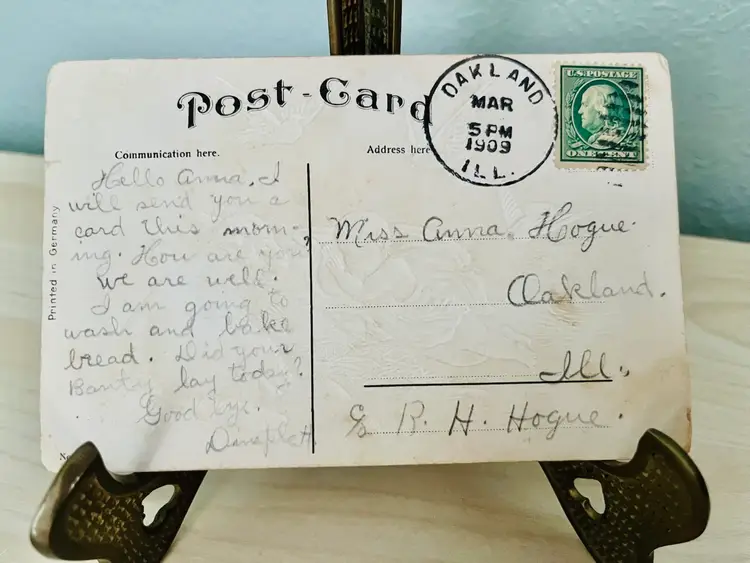 Post-Card
OAKLAND
MAR
5 PM
1909
ILL.
U.S. POSTAGE
ONE CENT
Communication here.
Address here
Printed in Germany
Hello Anna, I
will send you a
card this morn-
ing. How are you?
we are well.
I am going to
wash and bake
bread. Did your
Banty lay today?
Good bye.
Miss Anna Hogue.
Oakland.
Ill.
c/o R. H. Hogue.